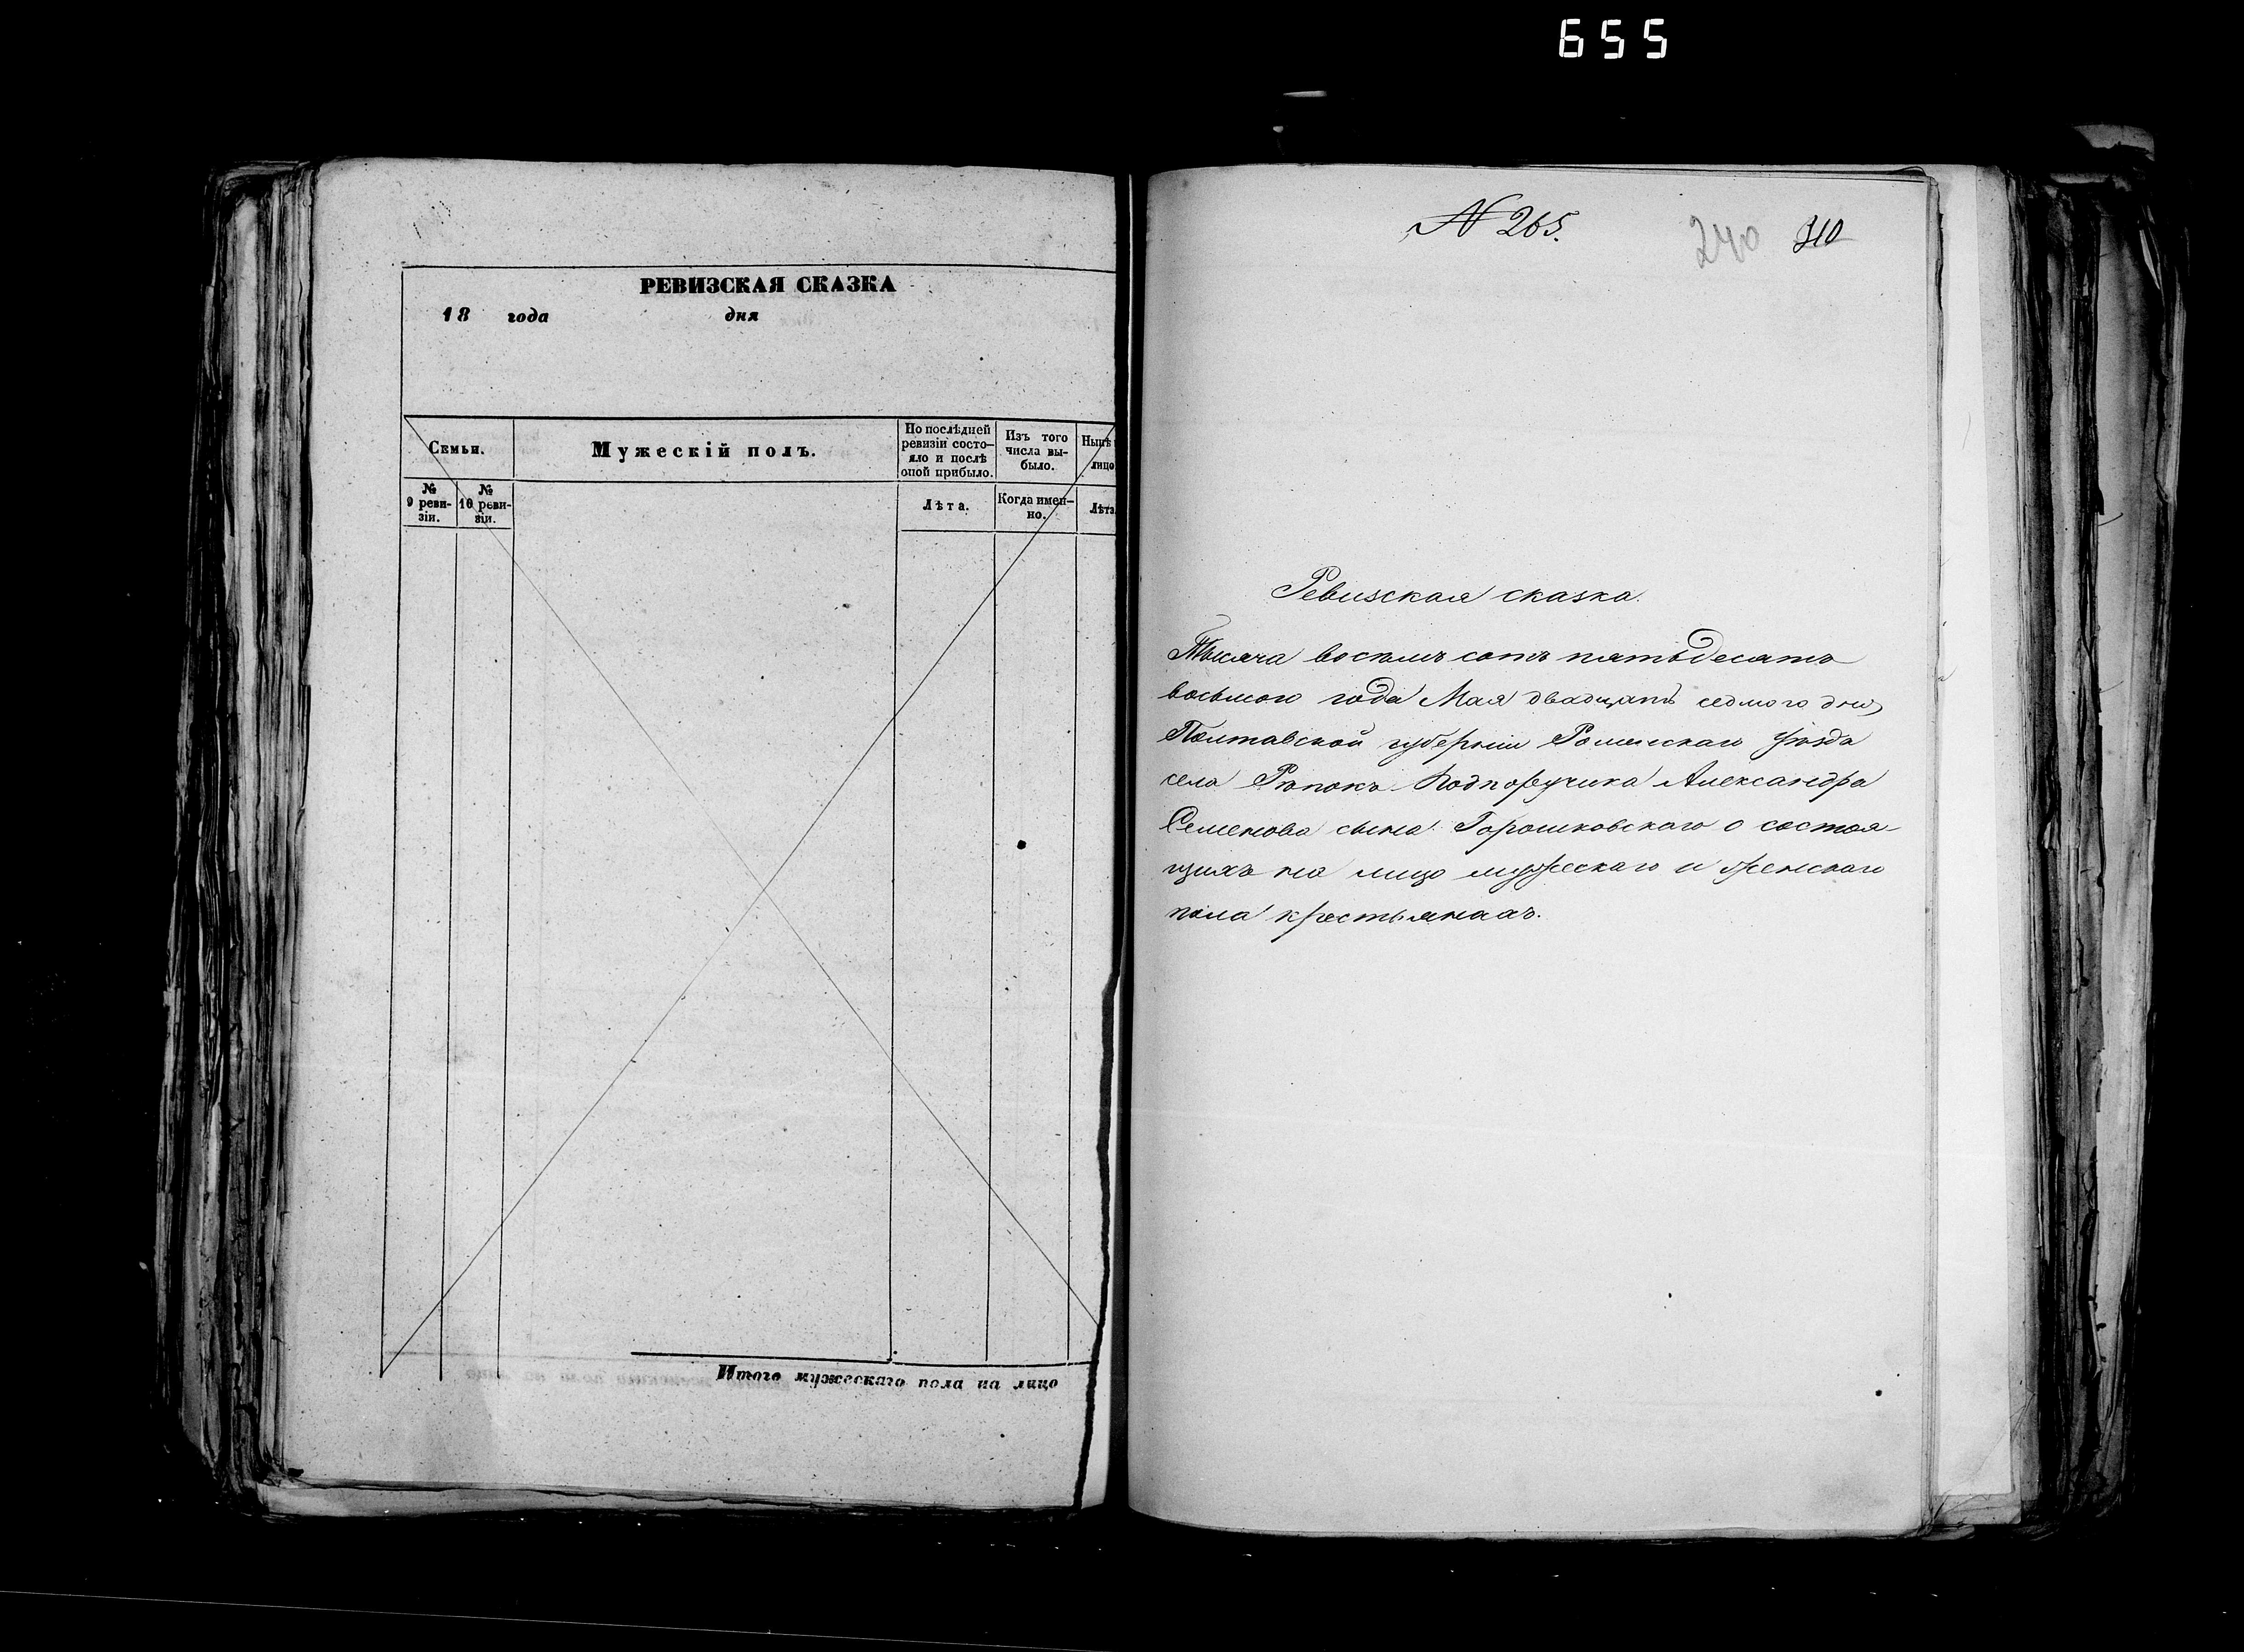 655
РЕВИЗСКАЯ СКАЗКА
18 года дня
Семьи.
Мужескій полъ.
По послѣдней ревизіи состо-
яло и послѣ оной прибыло.
Изъ того числа вы-
было.
Нынѣ
лицо
№ 9 реви-
зіи.
№ 10 реви-
зіи.
Лѣта.
Когда имен-
но.
Лѣта
Итого мужескаго пола на лицо
N 265.
240 310
Ревизская сказка.
Тысяча восемь сотъ пятьдесятъ
восьмого года Мая двадцать седмого дня
Полтавской губерніи Роменскаго уѣзда
села Рѣпокъ Подпоручика Александра
Семенова сына Горошковскаго о состоя-
щихъ на лицо мужескаго и женскаго
пола крестьянахъ.